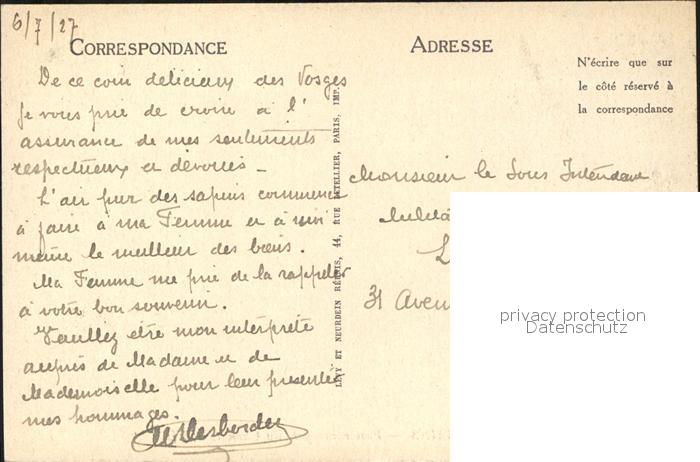 6/7/27
CORRESPONDANCE
De ce coin délicieux des Vosges
je vous prie de croire à l'
assurance de mes sentiments
respectueux et dévoués -
L'air pur des sapins commence
à faire à ma Femme et à moi
même le meilleur des biens.
Ma Femme me prie de la rappeler
à votre bon souvenir.
Veuillez être mon interprète
auprès de Madame et de
Mademoiselle pour leur présenter
mes hommages.
LÉVY ET NEURDEIN RÉUNIS, 44, RUE LETELLIER, PARIS, IMP.
ADRESSE
N'écrire que sur
le côté réservé à
la correspondance
Monsieur le Sous Intendant
31 Aven
privacy protection
Datenschutz